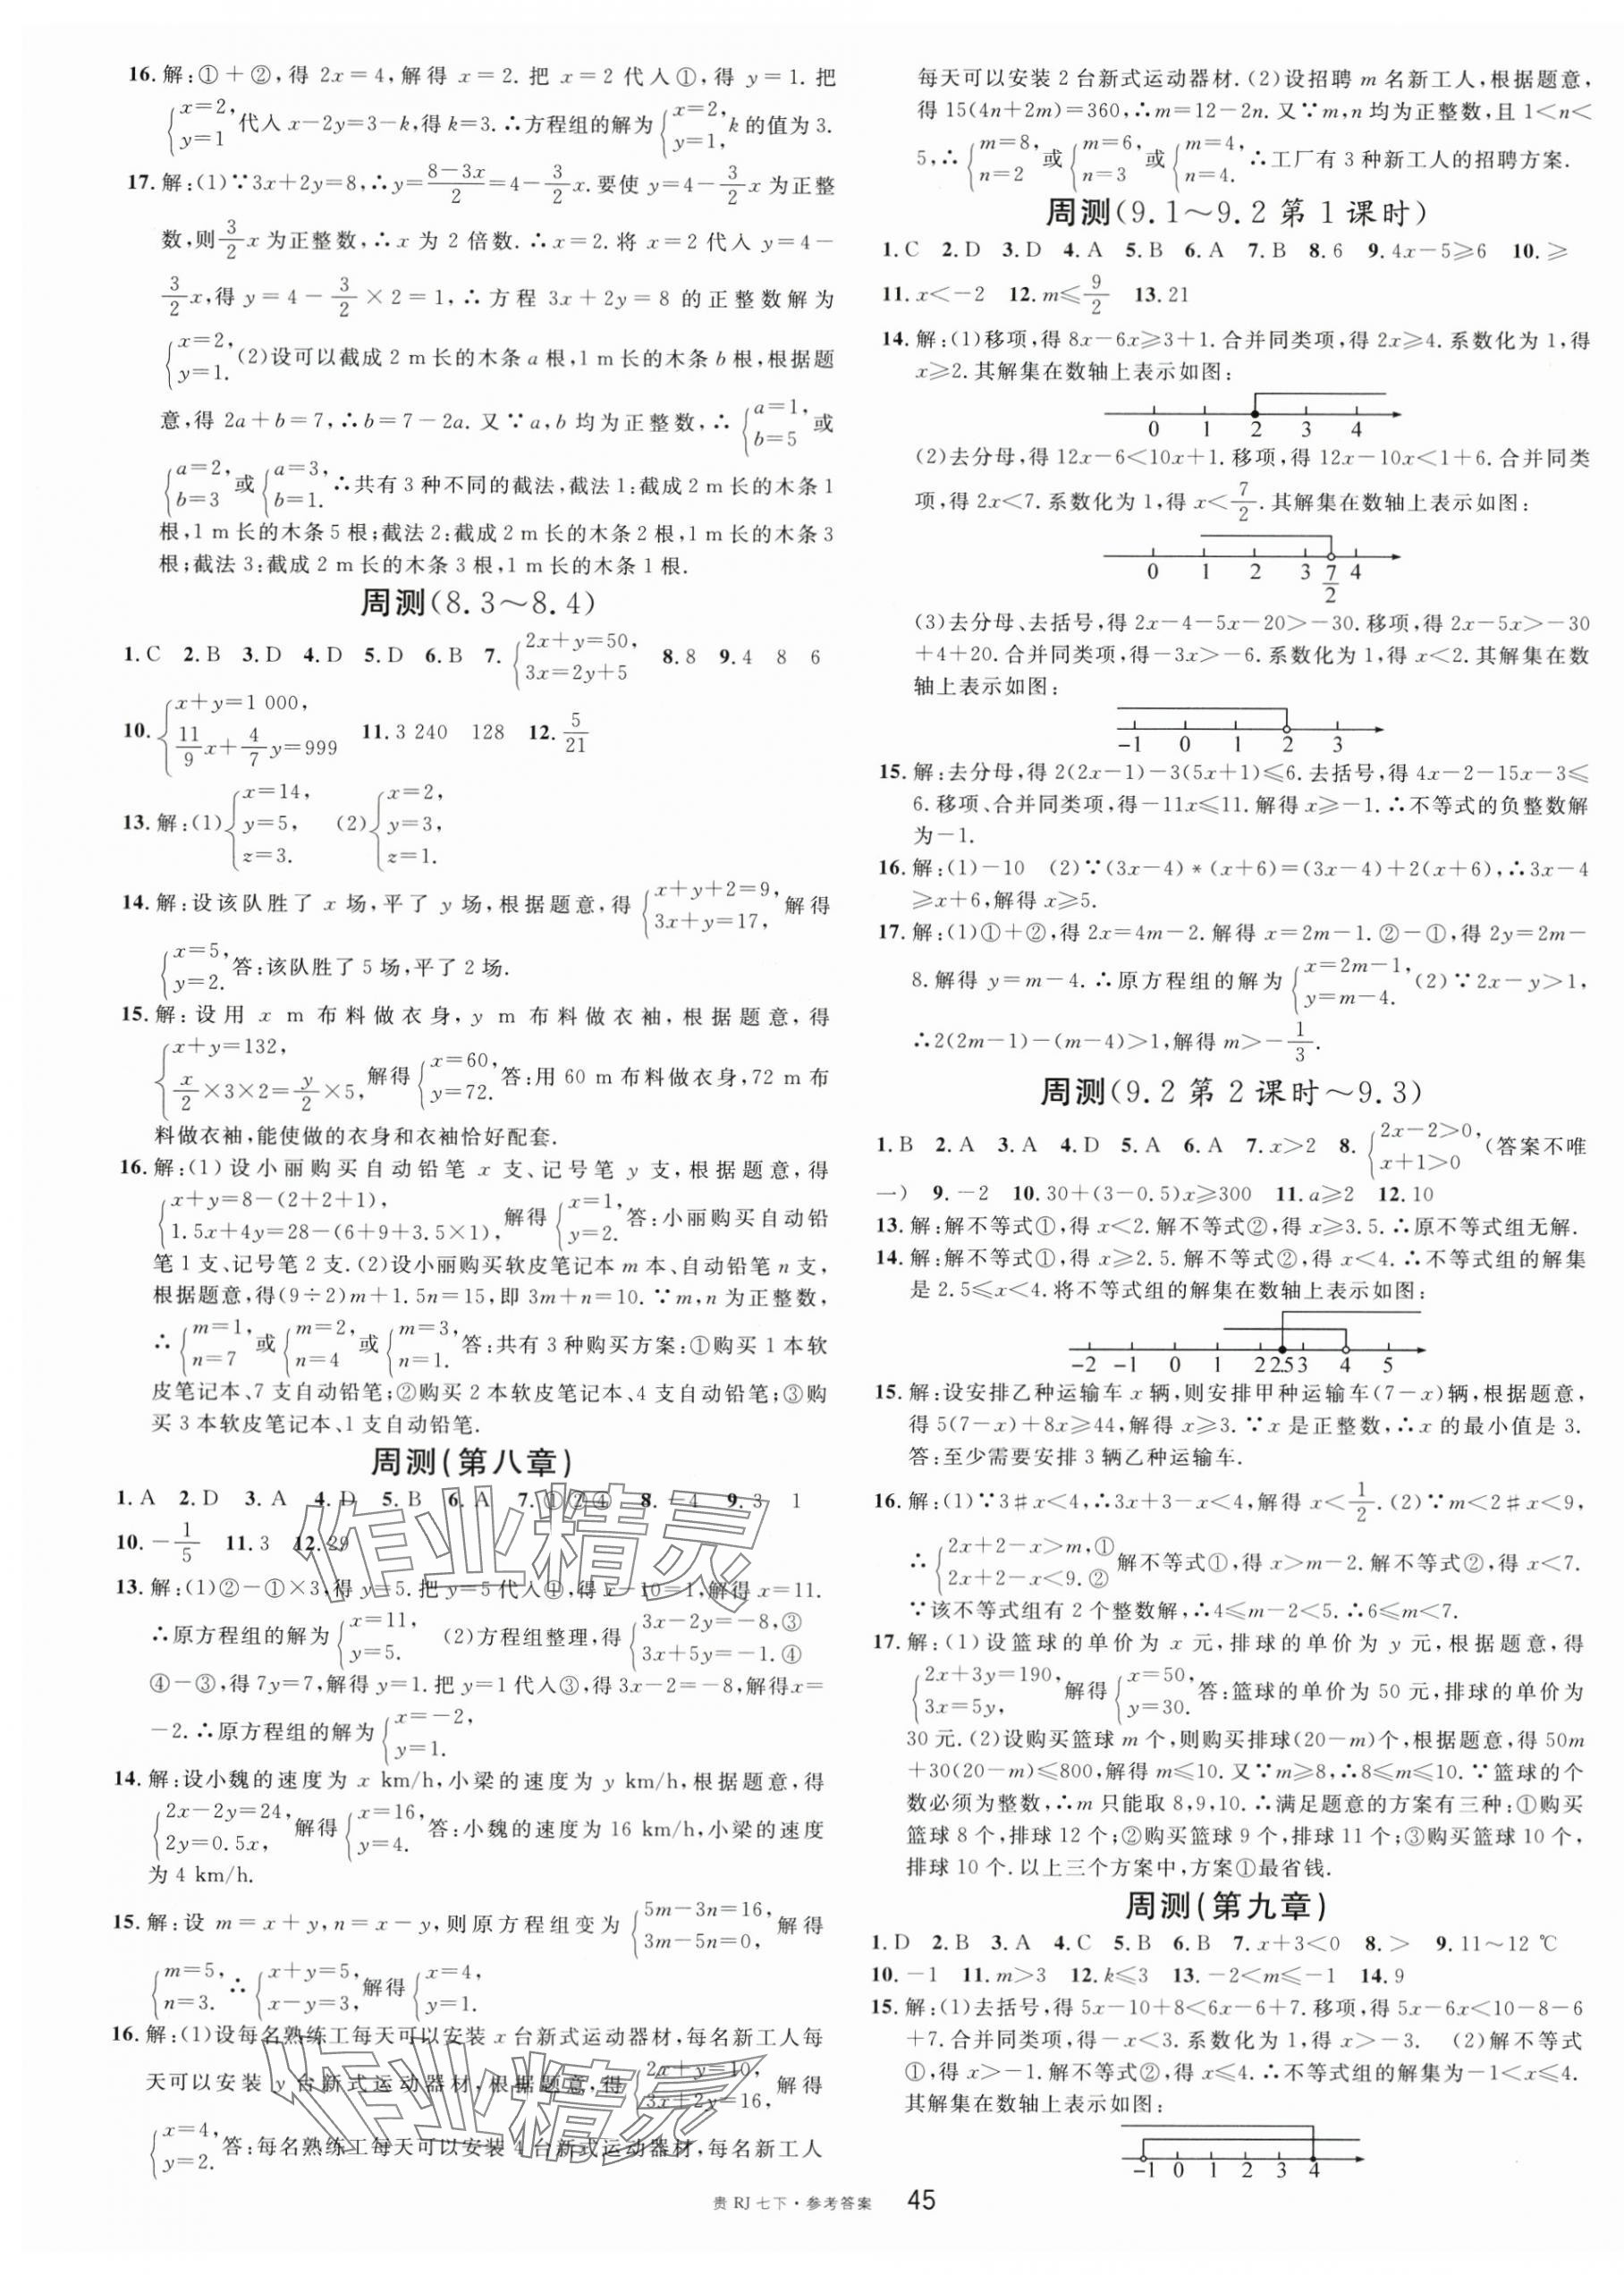 16.解:①+②,得 2x=4,解得 x=2.把 x=2 代入①,得 y=1.把
{x=2, y=1 代入 x-2y=3-k,得 k=3.∴方程组的解为{x=2, y=1, k 的值为 3.
17.解:(1)∵3x+2y=8,∴y=(8-3x)/2=4-3/2 x.要使 y=4-3/2 x 为正整
数,则 3/2 x 为正整数,∴x 为 2 倍数.∴x=2.将 x=2 代入 y=4-
3/2 x,得 y=4-3/2×2=1,∴方程 3x+2y=8 的正整数解为
{x=2, y=1. (2)设可以截成 2 m 长的木条 a 根,1 m 长的木条 b 根,根据题
意,得 2a+b=7,∴b=7-2a.又∵a,b 均为正整数,∴{a=1, b=5 或
{a=2, b=3 或{a=3, b=1. ∴共有 3 种不同的截法,截法 1:截成 2 m 长的木条 1
根,1 m 长的木条 5 根;截法 2:截成 2 m 长的木条 2 根,1 m 长的木条 3
根;截法 3:截成 2 m 长的木条 3 根,1 m 长的木条 1 根.
周测(8.3～8.4)
1.C 2.B 3.D 4.D 5.D 6.B 7.{2x+y=50, 3x=2y+5 8.8 9.4 8 6
10.{x+y=1 000, 11/9 x+4/7 y=999 11.3 240 128 12.5/21
13.解:(1){x=14, y=5, z=3. (2){x=2, y=3, z=1.
14.解:设该队胜了 x 场,平了 y 场,根据题意,得{x+y+2=9, 3x+y=17, 解得
{x=5, y=2. 答:该队胜了 5 场,平了 2 场.
15.解:设用 x m 布料做衣身,y m 布料做衣袖,根据题意,得
{x+y=132, x/2×3×2=y/2×5, 解得{x=60, y=72. 答:用 60 m 布料做衣身,72 m 布
料做衣袖,能使做的衣身和衣袖恰好配套.
16.解:(1)设小丽购买自动铅笔 x 支、记号笔 y 支,根据题意,得
{x+y=8-(2+2+1), 1.5x+4y=28-(6+9+3.5×1), 解得{x=1, y=2. 答:小丽购买自动铅
笔 1 支、记号笔 2 支.(2)设小丽购买软皮笔记本 m 本、自动铅笔 n 支,
根据题意,得(9÷2)m+1.5n=15,即 3m+n=10.∵m,n 为正整数,
∴{m=1, n=7 或{m=2, n=4 或{m=3, n=1. 答:共有 3 种购买方案:①购买 1 本软
皮笔记本、7 支自动铅笔;②购买 2 本软皮笔记本、4 支自动铅笔;③购
买 3 本软皮笔记本、1 支自动铅笔.
周测(第八章)
1.A 2.D 3.A 4.D 5.B 6.A 7.①②④ 8.-4 9.3 1
10.-1/5 11.3 12.29
13.解:(1)②-①×3,得 y=5.把 y=5 代入①,得 x-10=1,解得 x=11.
∴原方程组的解为{x=11, y=5. (2)方程组整理,得{3x-2y=-8,③ 3x+5y=-1.④
④-③,得 7y=7,解得 y=1.把 y=1 代入③,得 3x-2=-8,解得 x=
-2.∴原方程组的解为{x=-2, y=1.
14.解:设小魏的速度为 x km/h,小梁的速度为 y km/h,根据题意,得
{2x-2y=24, 2y=0.5x, 解得{x=16, y=4. 答:小魏的速度为 16 km/h,小梁的速度
为 4 km/h.
15.解:设 m=x+y,n=x-y,则原方程组变为{5m-3n=16, 3m-5n=0, 解得
{m=5, n=3. ∴{x+y=5, x-y=3, 解得{x=4, y=1.
16.解:(1)设每名熟练工每天可以安装 x 台新式运动器材,每名新工人每
天可以安装 y 台新式运动器材,根据题意,得{2x+y=10, 3x+2y=16, 解得
{x=4, y=2. 答:每名熟练工每天可以安装 4 台新式运动器材,每名新工人
每天可以安装 2 台新式运动器材.(2)设招聘 m 名新工人,根据题意,
得 15(4n+2m)=360,∴m=12-2n.又∵m,n 均为正整数,且 1<n<
5,∴{m=8, n=2 或{m=6, n=3 或{m=4, n=4. ∴工厂有 3 种新工人的招聘方案.
周测(9.1～9.2 第 1 课时)
1.C 2.D 3.D 4.A 5.B 6.A 7.B 8.6 9.4x-5≥6 10.≥
11.x<-2 12.m≤9/2 13.21
14.解:(1)移项,得 8x-6x≥3+1.合并同类项,得 2x≥4.系数化为 1,得
x≥2.其解集在数轴上表示如图:
0 1 2 3 4
(2)去分母,得 12x-6<10x+1.移项,得 12x-10x<1+6.合并同类
项,得 2x<7.系数化为 1,得 x<7/2.其解集在数轴上表示如图:
0 1 2 3 7/2 4
(3)去分母、去括号,得 2x-4-5x-20>-30.移项,得 2x-5x>-30
+4+20.合并同类项,得-3x>-6.系数化为 1,得 x<2.其解集在数
轴上表示如图:
-1 0 1 2 3
15.解:去分母,得 2(2x-1)-3(5x+1)≤6.去括号,得 4x-2-15x-3≤
6.移项、合并同类项,得-11x≤11.解得 x≥-1.∴不等式的负整数解
为-1.
16.解:(1)-10 (2)∵(3x-4)*(x+6)=(3x-4)+2(x+6),∴3x-4
≥x+6,解得 x≥5.
17.解:(1)①+②,得 2x=4m-2.解得 x=2m-1.②-①,得 2y=2m-
8.解得 y=m-4.∴原方程组的解为{x=2m-1, y=m-4. (2)∵2x-y>1,
∴2(2m-1)-(m-4)>1,解得 m>-1/3.
周测(9.2 第 2 课时～9.3)
1.B 2.A 3.A 4.D 5.A 6.A 7.x>2 8.{2x-2>0, x+1>0 (答案不唯
一) 9.-2 10.30+(3-0.5)x≥300 11.a≥2 12.10
13.解:解不等式①,得 x<2.解不等式②,得 x≥3.5.∴原不等式组无解.
14.解:解不等式①,得 x≥2.5.解不等式②,得 x<4.∴不等式组的解集
是 2.5≤x<4.将不等式组的解集在数轴上表示如图:
-2 -1 0 1 2 2.5 3 4 5
15.解:设安排乙种运输车 x 辆,则安排甲种运输车(7-x)辆,根据题意,
得 5(7-x)+8x≥44,解得 x≥3.∵x 是正整数,∴x 的最小值是 3.
答:至少需要安排 3 辆乙种运输车.
16.解:(1)∵3#x<4,∴3x+3-x<4,解得 x<1/2.(2)∵m<2#x<9,
∴{2x+2-x>m,① 2x+2-x<9.② 解不等式①,得 x>m-2.解不等式②,得 x<7.
∵该不等式组有 2 个整数解,∴4≤m-2<5.∴6≤m<7.
17.解:(1)设篮球的单价为 x 元,排球的单价为 y 元,根据题意,得
{2x+3y=190, 3x=5y, 解得{x=50, y=30. 答:篮球的单价为 50 元,排球的单价为
30 元.(2)设购买篮球 m 个,则购买排球(20-m)个,根据题意,得 50m
+30(20-m)≤800,解得 m≤10.又∵m≥8,∴8≤m≤10.∵篮球的个
数必须为整数,∴m 只能取 8,9,10.∴满足题意的方案有三种:①购买
篮球 8 个,排球 12 个;②购买篮球 9 个,排球 11 个;③购买篮球 10 个,
排球 10 个.以上三个方案中,方案①最省钱.
周测(第九章)
1.D 2.B 3.A 4.C 5.B 6.B 7.x+3<0 8.> 9.11～12 ℃
10.-1 11.m>3 12.k≤3 13.-2<m≤-1 14.9
15.解:(1)去括号,得 5x-10+8<6x-6+7.移项,得 5x-6x<10-8-6
+7.合并同类项,得-x<3.系数化为 1,得 x>-3. (2)解不等式
①,得 x>-1.解不等式②,得 x≤4.∴不等式组的解集为-1<x≤4.
其解集在数轴上表示如图:
-1 0 1 2 3 4
贵 RJ 七下·参考答案 45
作业精灵
作业精灵